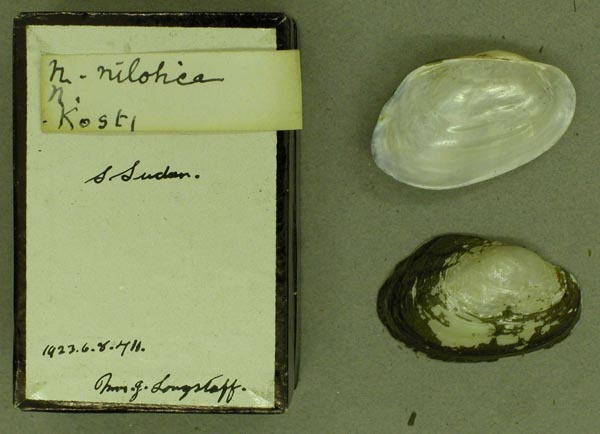 N. nilotica
N.
Kosti
S. Sudan.
1923.6.8.711.
Mrs. J. Longstaff.